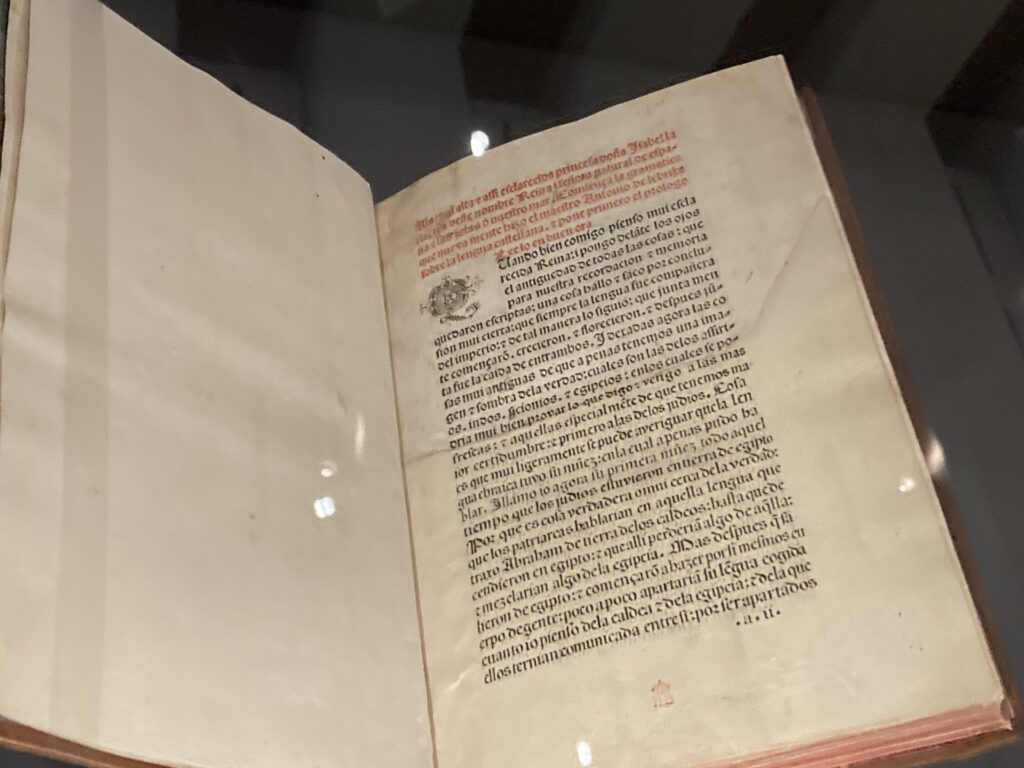 A la mui alta z assi esclarecida princesa doña Isabella
la tercera deste nombre Reina i señora natural de espa-
ña z las islas d nuestro mar. Comiença la gramatica
que nueva mente hizo el maestro Antonio de lebrixa
sobre la lengua castellana. z pone primero el prologo
Lee lo en buen ora
Cuando bien comigo pienso mui escla
recida Reina: i pongo delãte los ojos
el antiguedad de todas las cosas: que
para nuestra recordacion z memoria
quedaron escriptas: una cosa hállo z saco por conclu-
sion mui cierta: que siempre la lengua fue compañera
del imperio: z de tal manera lo siguió: que junta mente
començarõ. crecieron. z florecieron. z despues jũ-
ta fue la caida de entrambos. I dexadas agora las co
sas mui antiguas de que a penas tenemos una ima-
gen z sombra dela verdad: cuales son las delos assiri-
os. indos. sicionios. z egipcios: enlos cuales se po-
dria mui bien provar lo que digo: vengo a las mas
frescas: z aquellas especial mẽte de que tenemos ma-
ior certidumbre: z primero alas delos judios. Cosa
es que mui ligera mente se puede averiguar quela len
gua ebraica tuvo su niñez: enla cual a penas pudo ha
blar. I llámo io agora su primera niñez todo aquel
tiempo que los judios estuvieron en tierra de egipto
Por que es cosa verdadera o mui cerca dela verdad:
que los patriarcas hablarían en aquella lengua que
traxo Abraham de tierra delos caldeos: hasta que de
cendieron en egipto: z que alli perderiã algo de aq̃lla:
z mezclarían algo dela egipcia. Mas despues q̃ sa
lieron de egipto: z començarõ a hazer por si mesmos cu
erpo de gente: poco a poco apartariã su lẽgua cogida
cuanto io pienso dela caldea z dela egipcia: z dela que
ellos ternian comunicada entre si: por ser apartados
.a.ii.